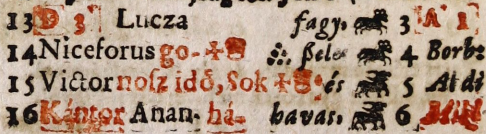 13 D 3 Lucza fagy, 3 A 1
14 Niceforus go- ſzele 4 Borb
15 Victor noſz idő, Sok és 5 Al di
16 Kántor Anan- há- havas, 6